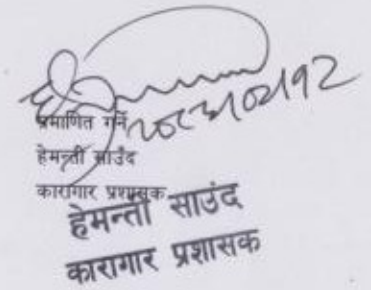 प्रमाणित गर्ने
हेमन्ती साउंद
कारागार प्रशासक
हेमन्ती साउंद
कारागार प्रशासक